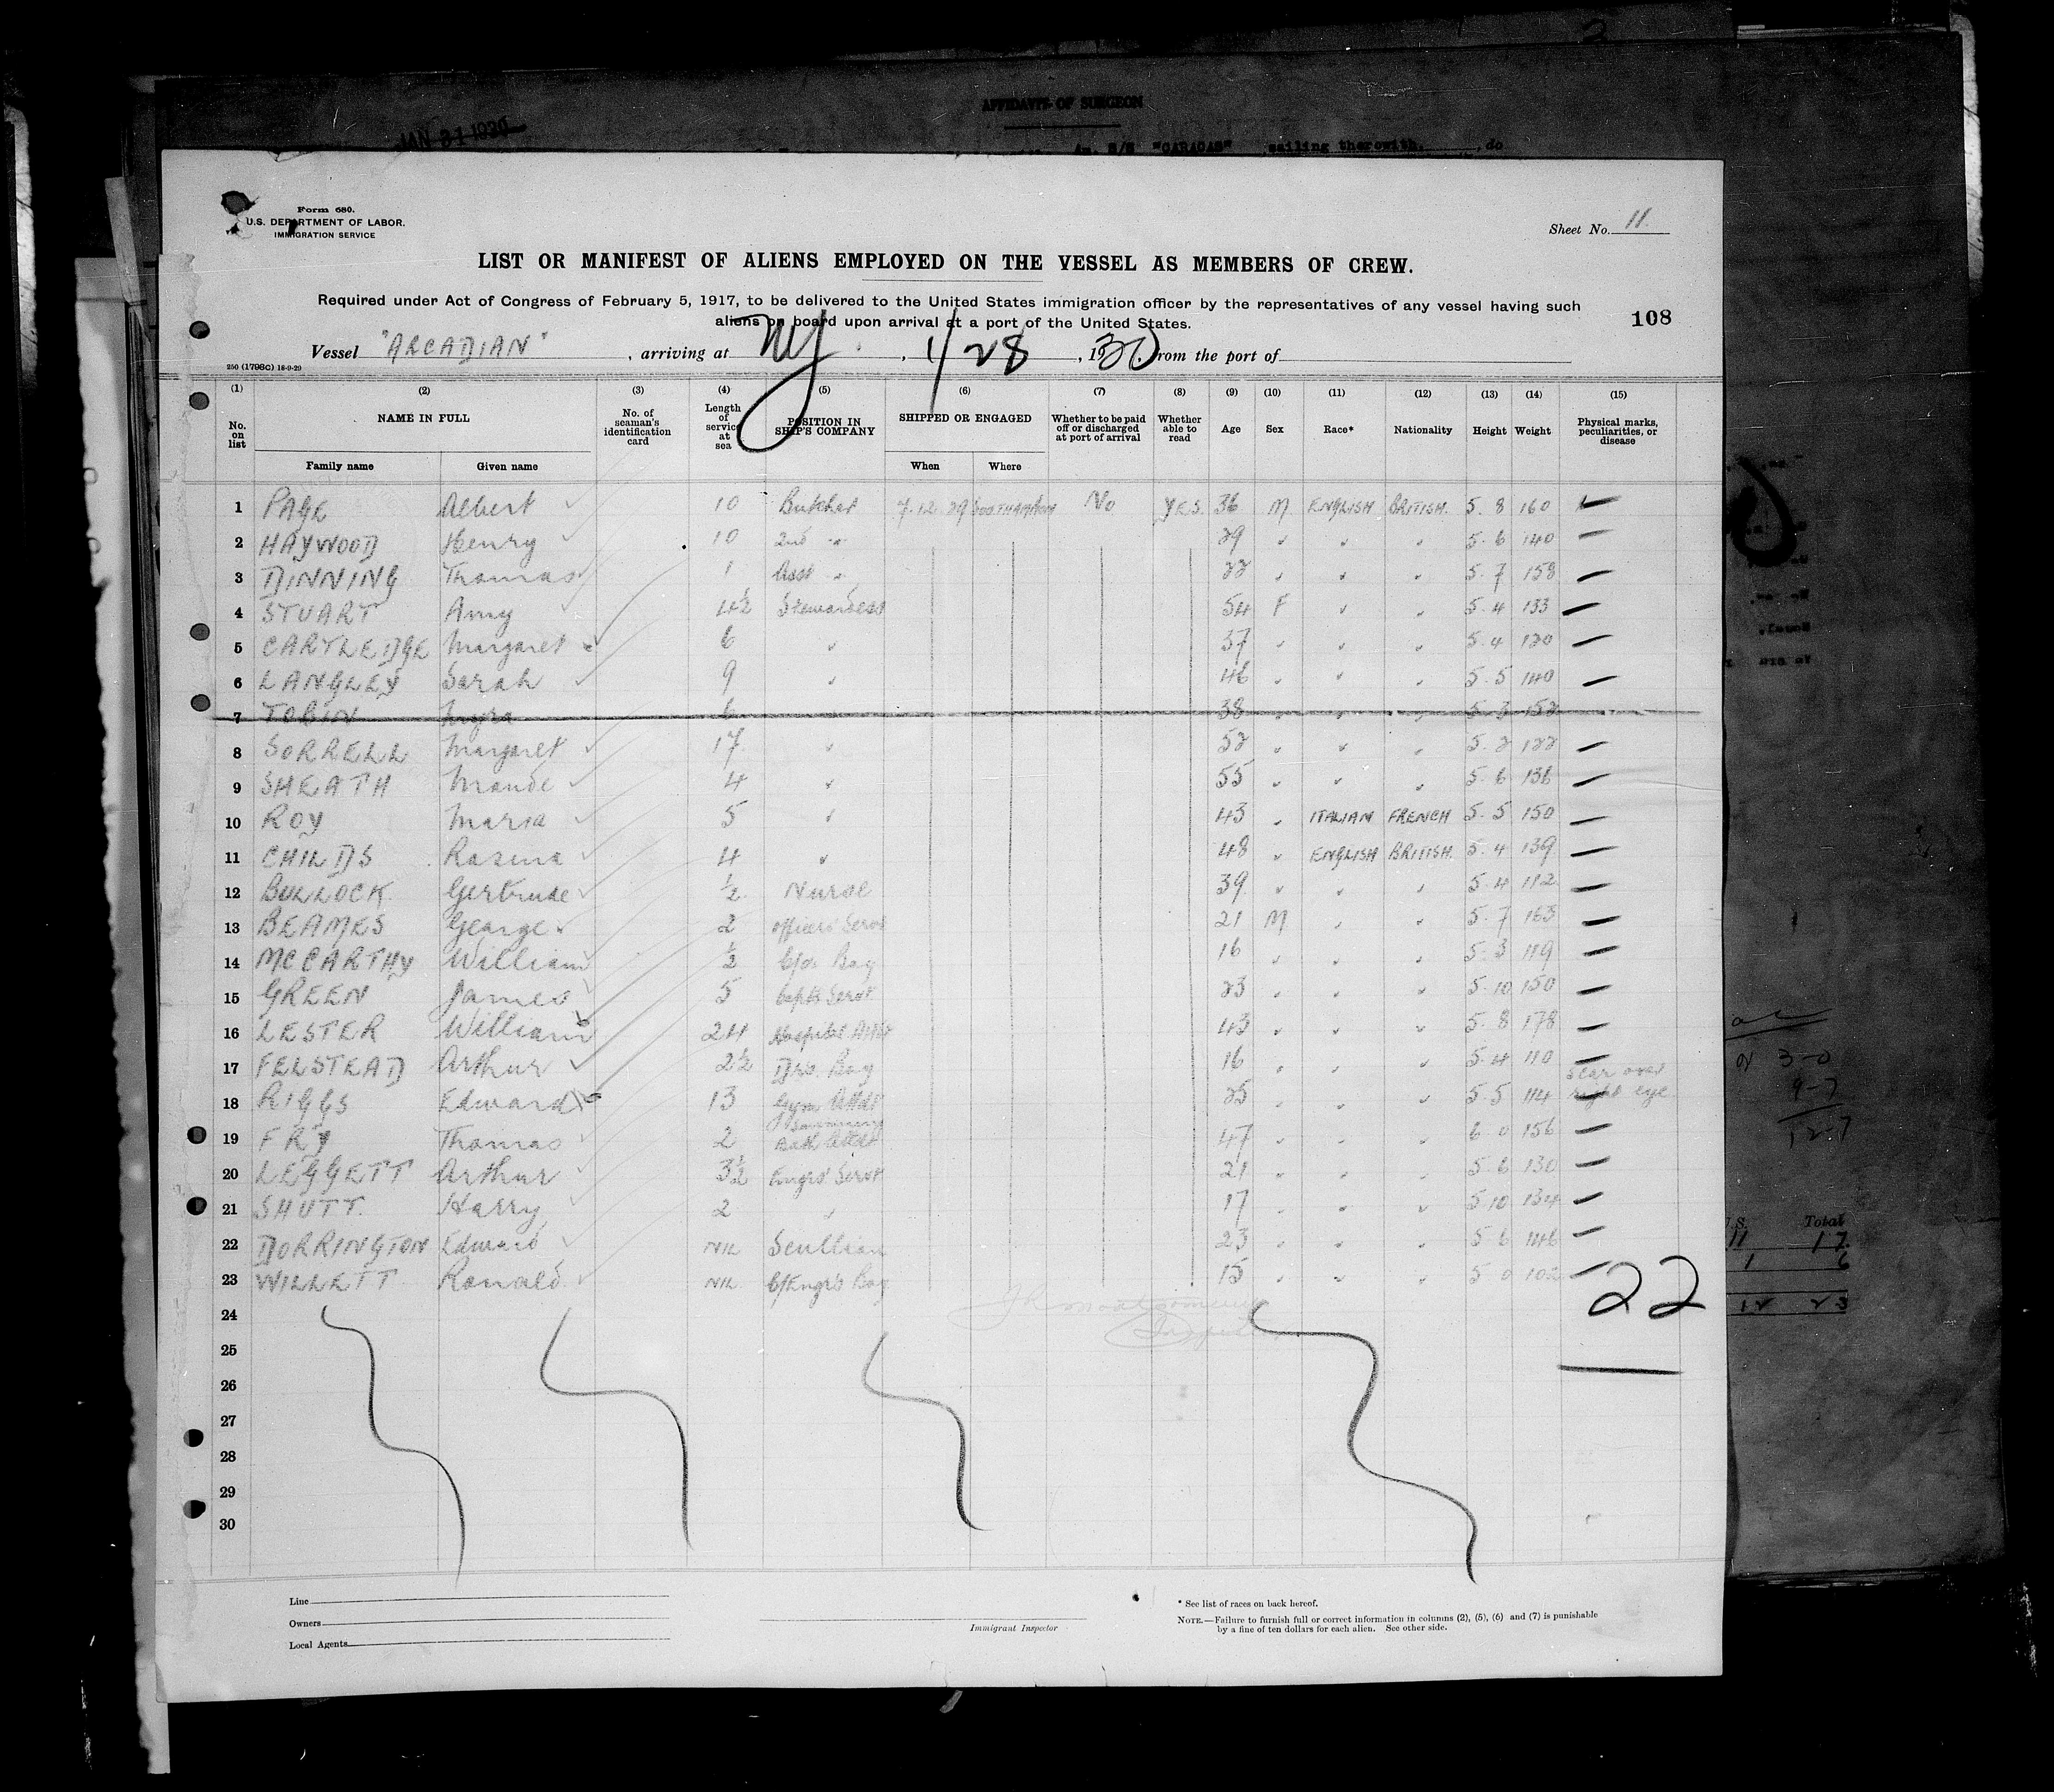 AFFIDAVIT OF SURGEON
JAN 31 1930
Am. S/S "CARACAS" sailing therewith, do
Form 680.
U.S. DEPARTMENT OF LABOR.
IMMIGRATION SERVICE
Sheet No. 11.
LIST OR MANIFEST OF ALIENS EMPLOYED ON THE VESSEL AS MEMBERS OF CREW.
Required under Act of Congress of February 5, 1917, to be delivered to the United States immigration officer by the representatives of any vessel having such
aliens on board upon arrival at a port of the United States.
108
Vessel "ARCADIAN", arriving at NY., 1/28, 1930, from the port of
250 (1798C) 18-9-29
(1) (2) (3) (4) (5) (6) (7) (8) (9) (10) (11) (12) (13) (14) (15)
No. on list NAME IN FULL No. of seaman's identification card Length of service at sea POSITION IN SHIP'S COMPANY SHIPPED OR ENGAGED Whether to be paid off or discharged at port of arrival Whether able to read Age Sex Race* Nationality Height Weight Physical marks, peculiarities, or disease
Family name Given name When Where
1 PAGE Albert 10 Butcher 7.12.29 SOUTHAMPTON No YES. 36 M. ENGLISH BRITISH. 5. 8 160 —
2 HAYWOOD Henry 10 2nd " 29 " " " 5. 6 140 —
3 DINNING Thomas 1 Asst " 22 " " " 5. 7 158 —
4 STUART Amy 4½ Stewardess 54 F " " 5. 4 133 —
5 CARTLEDGE Margaret 6 " 37 " " " 5. 4 120 —
6 LANGLEY Sarah 9 " 46 " " " 5. 5 140 —
7 TOBIN Myra 6 " 38 " " " 5. 3 152
8 SORRELL Margaret 17. " 52 " " " 5. 2 122 —
9 SHEATH Maude 4 " 55 " " " 5. 6 136 —
10 ROY Maria 5 " 43 " ITALIAN FRENCH 5. 5 150 —
11 CHILDS Rosina 4 " 48 " ENGLISH BRITISH. 5. 4 139 —
12 BULLOCK Gertrude ½ Nurse 39. " " " 5. 4 112 —
13 BEAMES George 2 Officers' Servt 21 M " " 5. 7 163 —
14 MCCARTHY William ½ Boy 16 " " " 5. 3 119 —
15 GREEN James 5 Capt's Servt 23 " " " 5. 10 150 —
16 LESTER William 24 Hospital Attdt 43 " " " 5. 8 178 —
17 FELSTEAD Arthur 2½ Drs. Boy 16 " " " 5. 4 110 —
18 RIGGS Edward 13 Gym Attdt 25 " " " 5. 5 114 Scar over right eye
19 FRY Thomas 2 Swimming Bath Attdt 47 " " " 6. 0 156 —
20 LEGGETT Arthur 3½ Engrs' Servt 21 " " " 5. 6 130 —
21 SHUTT. Harry 2 " 17 " " " 5. 10 134 —
22 DORRINGTON Edward NIL Scullion 23 " " " 5. 6 146 —
23 WILLETT Ronald NIL. C/Engr's Boy 15 " " " 5. 0 102 —
22
24
25
26
27
28
29
30
Line
Owners
Local Agents
Immigrant Inspector
* See list of races on back hereof.
NOTE.—Failure to furnish full or correct information in columns (2), (5), (6) and (7) is punishable
by a fine of ten dollars for each alien. See other side.
3-0
9-7
12-7
U.S. Total
11 17
1 6
12 23